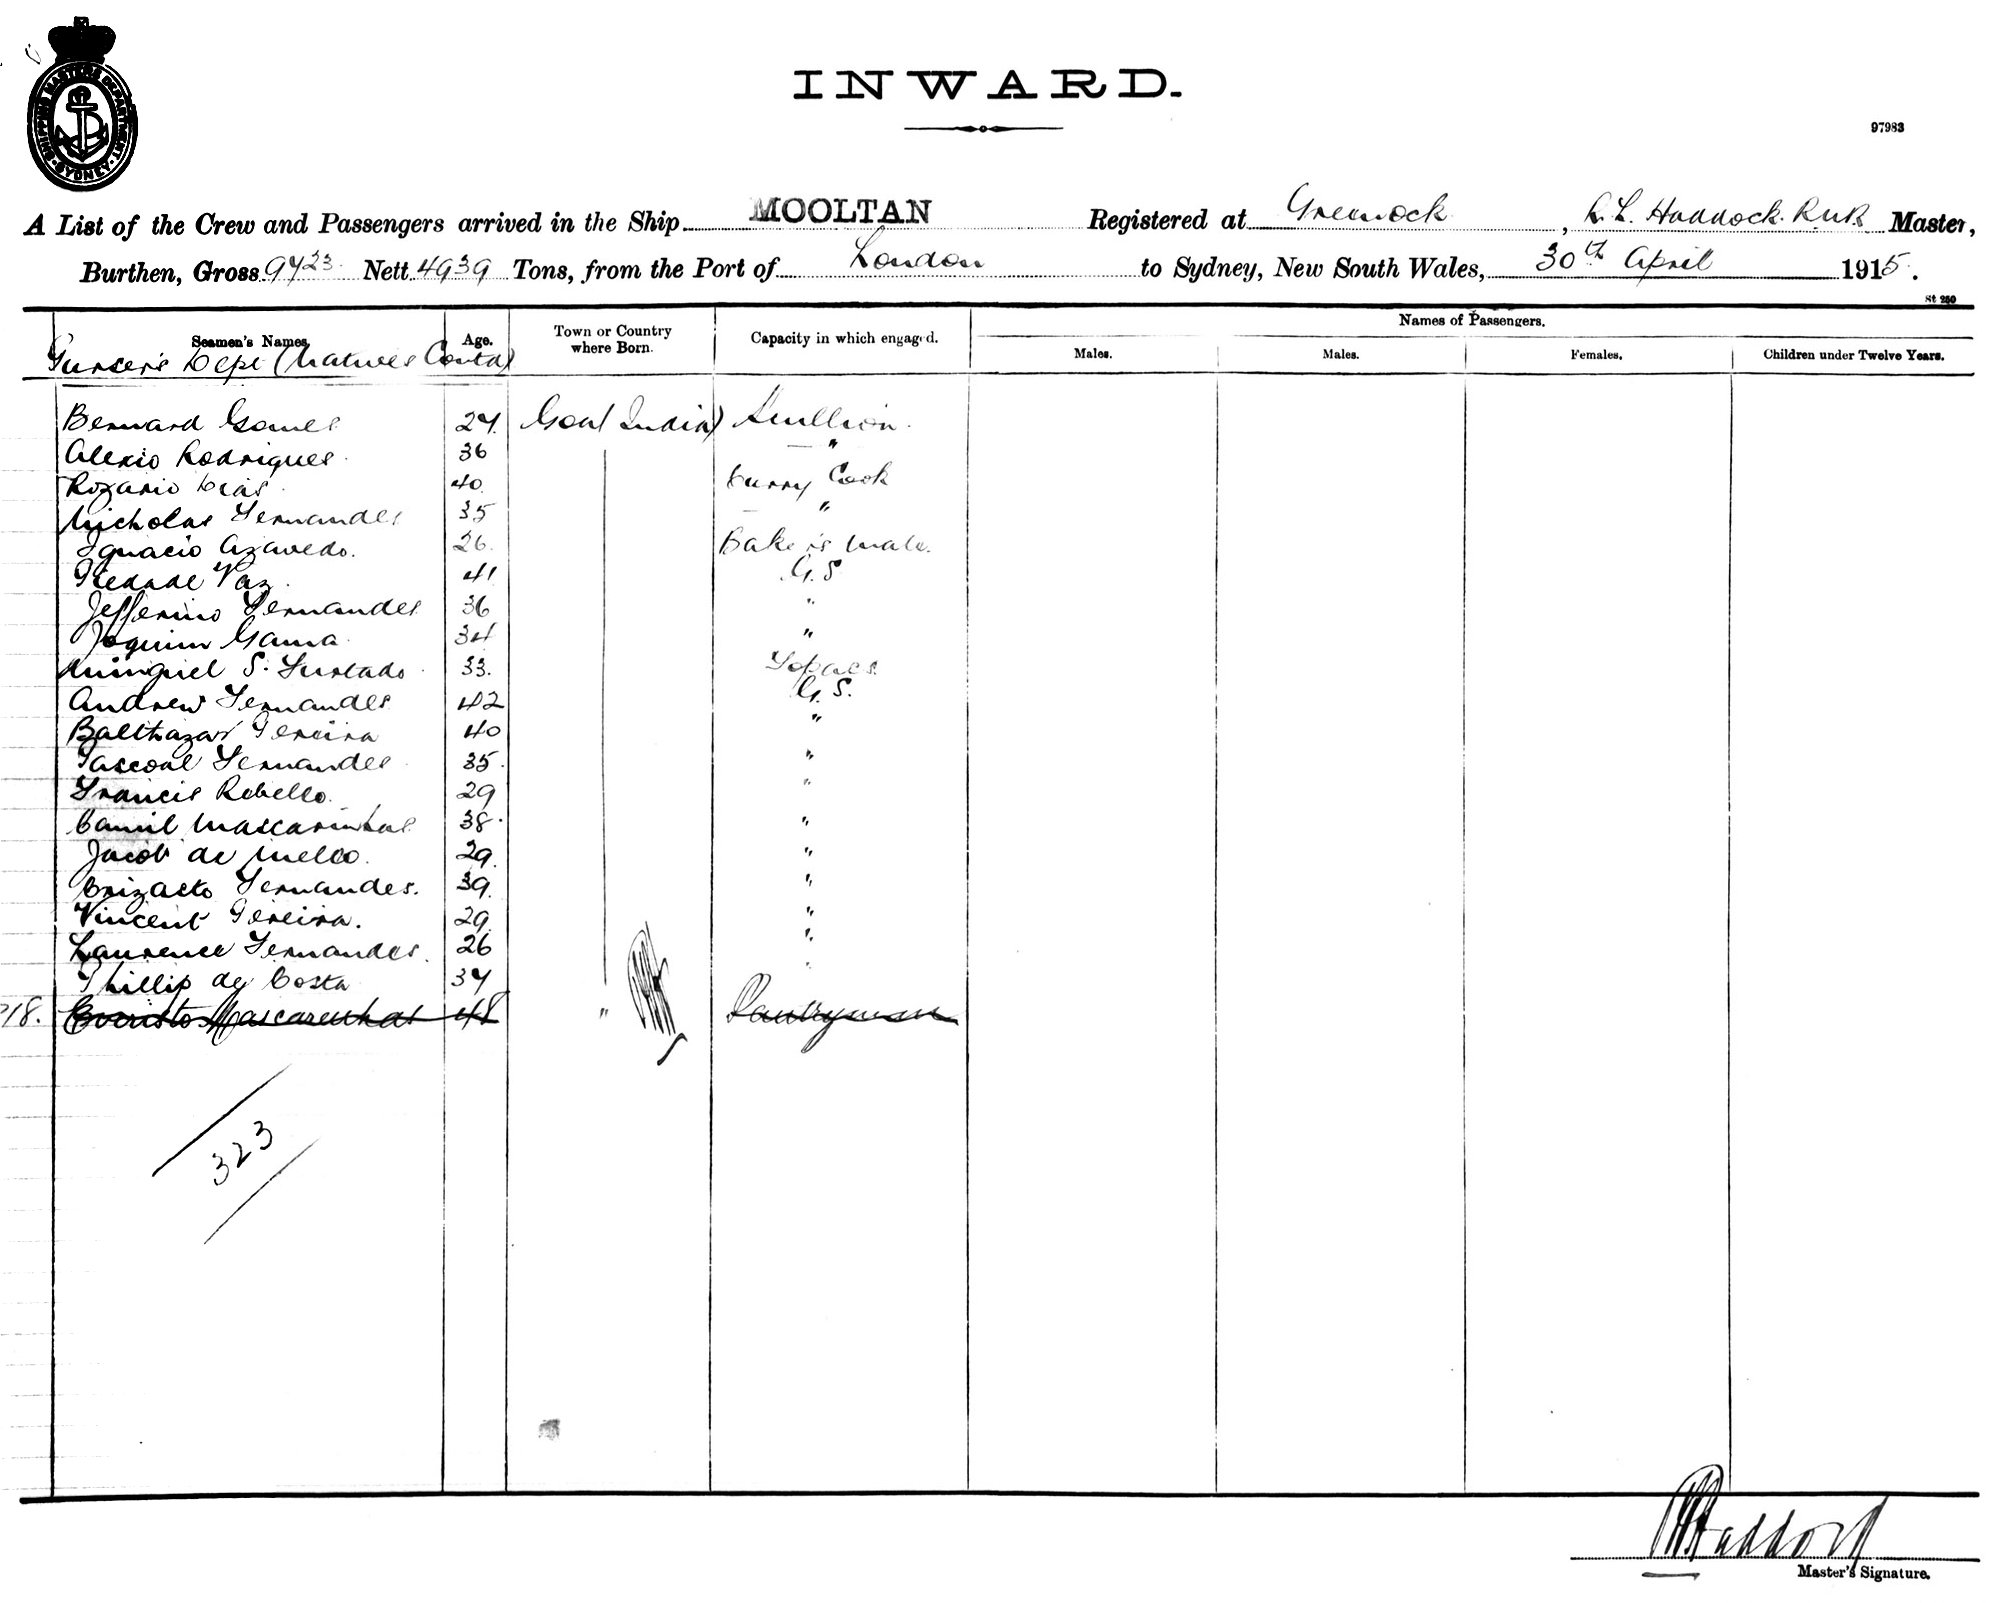 SHIPPING MASTERS DEPARTMENT
SYDNEY
INWARD.
97983
A List of the Crew and Passengers arrived in the Ship MOOLTAN Registered at Greenock, Haddock. R.N.R Master,
Burthen, Gross 9723 Nett 4939 Tons, from the Port of London to Sydney, New South Wales, 30th April 1915.
St 250
Seamen's Names Age. Town or Country where Born. Capacity in which engaged. Names of Passengers.
Males. Males. Females. Children under Twelve Years.
Purser's Dept (Natives Contd)
Bernard Gomes 27. Goa (India) Scullion.
Alexio Rodrigues. 36 "
Rozario Dias. 40. Curry Cook
Nicholas Fernandes 35 "
Ignacio Azavedo. 26. Baker's Mate.
Piedade Vaz. 41 G.S
Jefferino Fernandes 36 "
Joquim Gama 34 "
Minguel S. Furtado. 33. Topass.
Andrew Fernandes 42 G.S.
Balthazar Pereira 40 "
Pascoal Fernandes 35. "
Francis Rebello. 29 "
Camil Mascarinhas 38. "
Jacob de Mello. 29. "
Fernandes. 39. "
Vincent Pereira. 29. "
Laurence Fernandes. 26 "
Phillip de Costa 37 "
318. Evaristo Mascarenhas 48 " Pantryman
323
Haddock
Master's Signature.